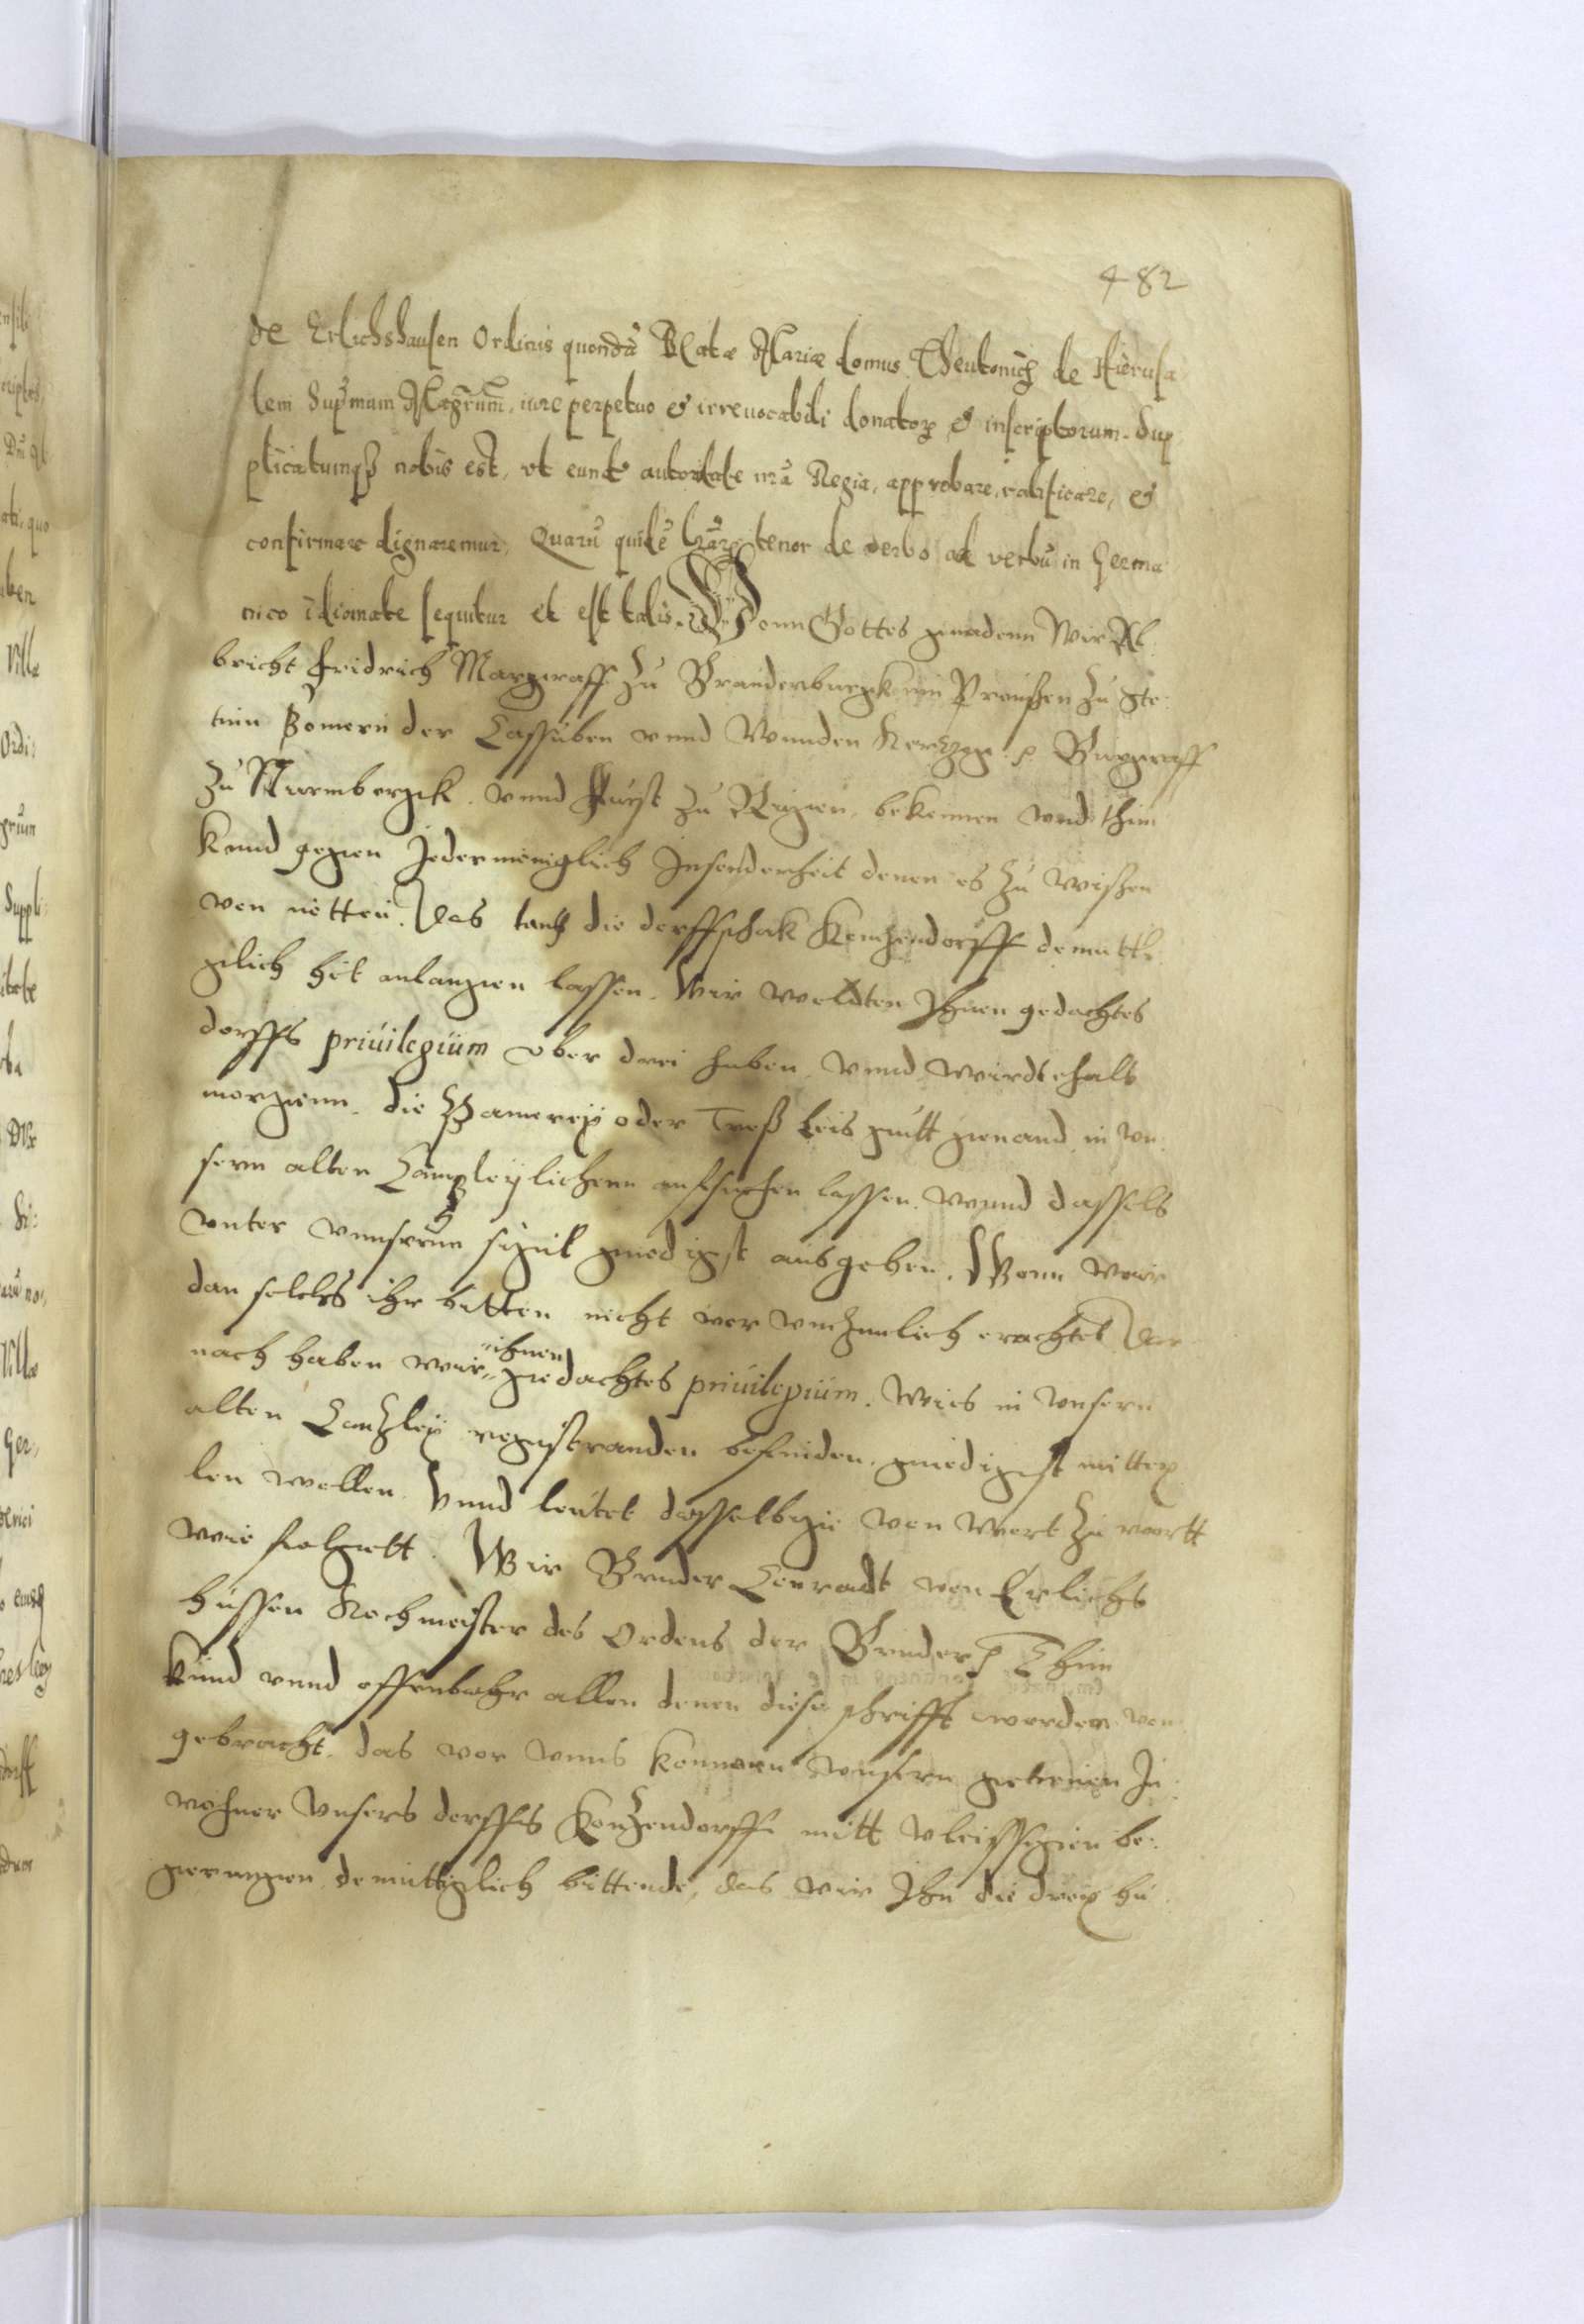 482
de Erlichshausen Ordinis quondã Beatæ Mariæ domus Theutonicę de Hierusa
lem Supmum Mag̃rum, iure perpetuo & irreuocabili donatoꝝ & inscriptorum. Sup
plicatumqꝫ nobis est, vt eund̃ autoritate nrã Regia, approbare, ratificare, &
confirmare dignaremur, Quarũ quidẽ lrãꝝ tenor de verbo ad verbũ in Germa
nico idiomate sequitur et est talis. Vonn Gottes gnadenn Wir Al
bricht Fridrich Marggraff zu Brandenburgk inn Preussen zu Ste:
tinn Pomern der Cassuben vnnd Wenden Hertzog p Burggraff
zu Nurmbergk vnnd Furst zu Rugen, bekennen vnd thun
kund gegen Jedermeniglich Insonderheit denen es zu wissen
von nötten. Das Vns die dorffschafft Kontzendorff demutti
glich hat anlangen lassen. Wir wolten Ihnen gedachtes
dorffs priuilegium vber drei huben vnnd
morgenn, die oder gutt genand in vn:
sern alten Cantzley auffsuchen lassen, vnnd dasselb
vnter vnnserm sigill gnedigst ausgeben. Wenn wir
dan solchs ihr bitten nicht vor vnzimlich erachtet Der
nach haben wir ihnen gedachtes priuilegium. Wies in vnsern
alten Cantzley registranden befunden, gnedigst mittey
len wollen. Vnnd leutet dasselbige von wort zu wortt
wie folgett. Wir Bruder Conradt von Erlichs
hussen Hochmeister des Ordens der Bruder p Thun
kund vnnd offenbahr allen denen diese schrifft werden von
gebracht, das vor vnns kommen vnsern getreuen In
wohner Vnsers dorffs Kontzendorff mitt vleissigen be:
gerungen demuttiglich bittende, das wir Ihn die drey hu